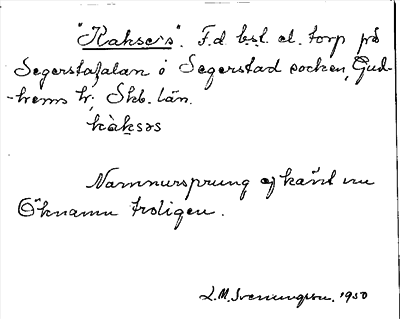 "Kaksers". F.d. bst. el. torp på
Segerstafalan i Segerstad socken, Gud-
-hems hr; Skb. län.
kàksəs
Namnursprung ej känt nu
Öknamn troligen.
L. M. Svenungsson. 1950